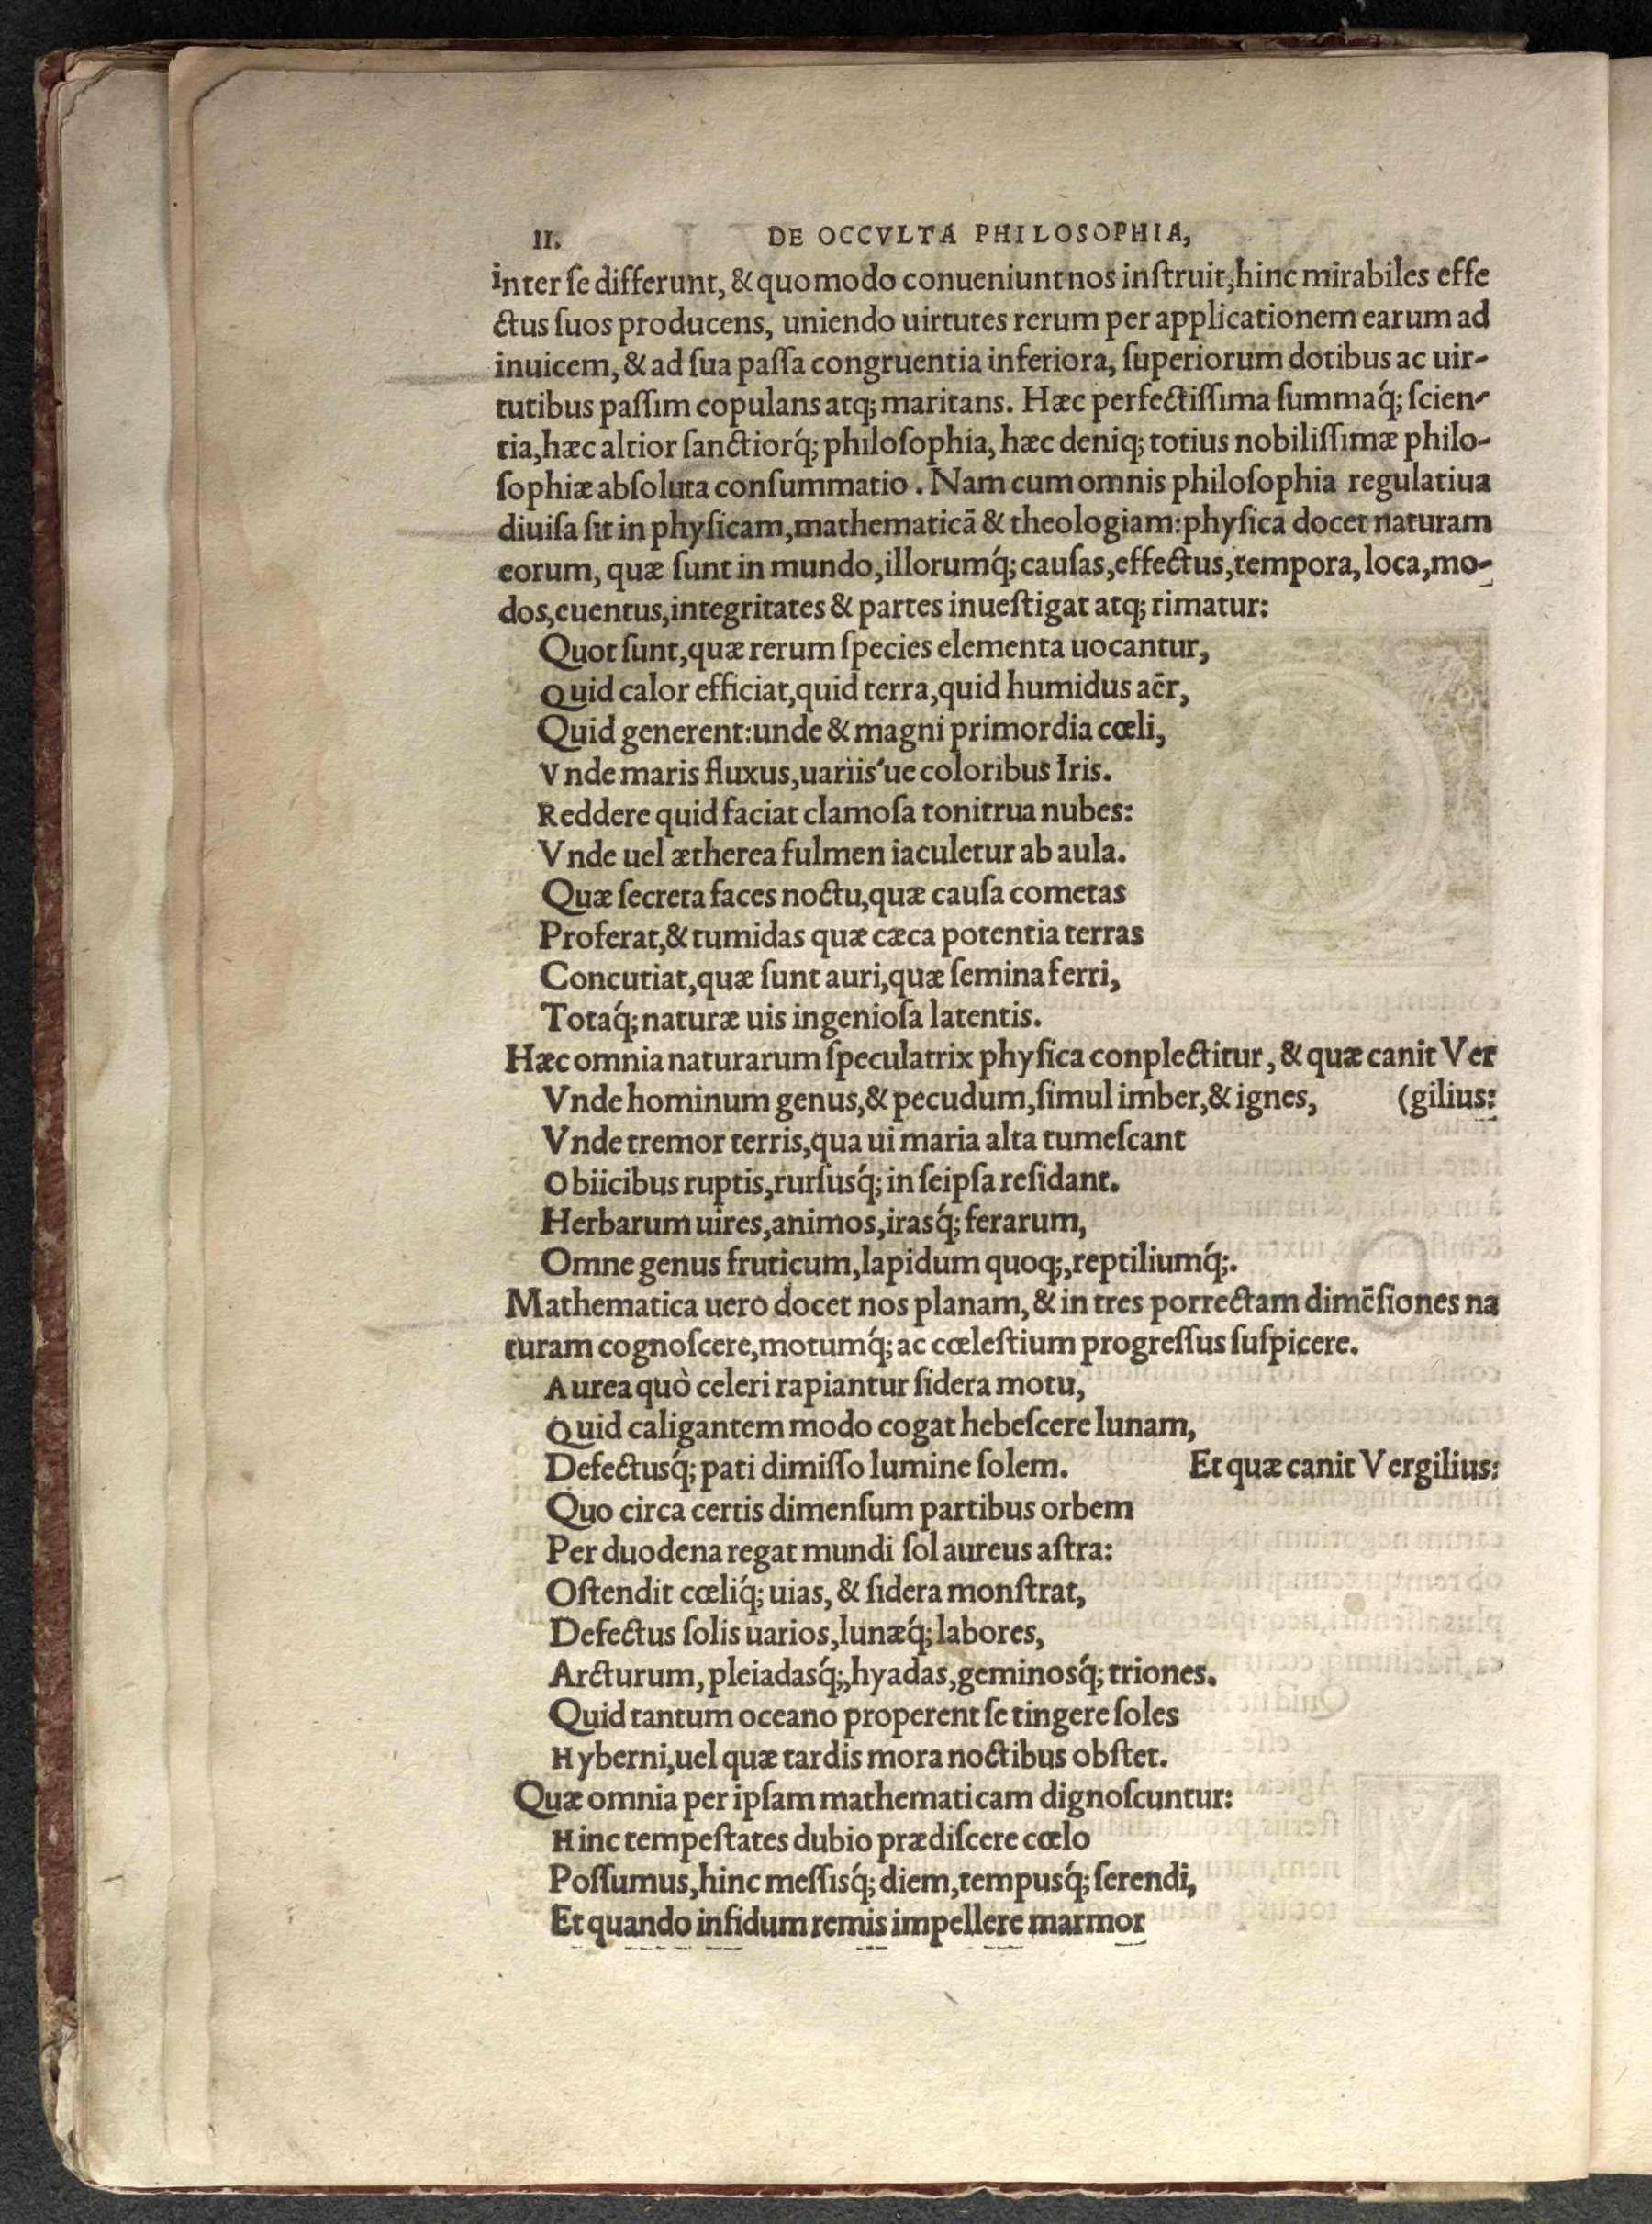 II. DE OCCVLTA PHILOSOPHIA,
inter ſe differunt, & quomodo conueniunt nos inſtruit, hinc mirabiles effe
ctus ſuos producens, uniendo uirtutes rerum per applicationem earum ad
inuicem, & ad ſua paſſa congruentia inferiora, ſuperiorum dotibus ac uir-
tutibus paſſim copulans atq; maritans. Hæc perfectiſſima ſummaq́; ſcien-
tia, hæc altior ſanctiorq́; philoſophia, hæc deniq; totius nobiliſſimæ philo-
ſophiæ abſoluta conſummatio. Nam cum omnis philoſophia regulatiua
diuiſa ſit in phyſicam, mathematicā & theologiam: phyſica docet naturam
eorum, quæ ſunt in mundo, illorumq́; cauſas, effectus, tempora, loca, mo-
dos, euentus, integritates & partes inueſtigat atq; rimatur:
Quot ſunt, quæ rerum ſpecies elementa uocantur,
Quid calor efficiat, quid terra, quid humidus aër,
Quid generent: unde & magni primordia cœli,
Vnde maris fluxus, uariis'ue coloribus Iris.
Reddere quid faciat clamoſa tonitrua nubes:
Vnde uel ætherea fulmen iaculetur ab aula.
Quæ ſecreta faces noctu, quæ cauſa cometas
Proferat, & tumidas quæ cæca potentia terras
Concutiat, quæ ſunt auri, quæ ſemina ferri,
Totaq́; naturæ uis ingenioſa latentis.
Hæc omnia naturarum ſpeculatrix phyſica conplectitur, & quæ canit Ver
Vnde hominum genus, & pecudum, ſimul imber, & ignes, (gilius:
Vnde tremor terris, qua ui maria alta tumeſcant
Obiicibus ruptis, rurſusq́; in ſeipſa reſidant.
Herbarum uires, animos, irasq́; ferarum,
Omne genus fruticum, lapidum quoq;, reptiliumq́;.
Mathematica uero docet nos planam, & in tres porrectam dimēſiones na
turam cognoſcere, motumq́; ac cœleſtium progreſſus ſuſpicere.
Aurea quò celeri rapiantur ſidera motu,
Quid caligantem modo cogat hebeſcere lunam,
Defectusq́; pati dimiſſo lumine ſolem. Et quæ canit Vergilius:
Quo circa certis dimenſum partibus orbem
Per duodena regat mundi ſol aureus aſtra:
Oſtendit cœliq́; uias, & ſidera monſtrat,
Defectus ſolis uarios, lunæq́; labores,
Arcturum, pleiadasq́;, hyadas, geminosq́; triones.
Quid tantum oceano properent ſe tingere ſoles
Hyberni, uel quæ tardis mora noctibus obſtet.
Quæ omnia per ipſam mathematicam dignoſcuntur:
Hinc tempeſtates dubio prædiſcere cœlo
Poſſumus, hinc meſſisq́; diem, tempusq́; ſerendi,
Et quando infidum remis impellere marmor